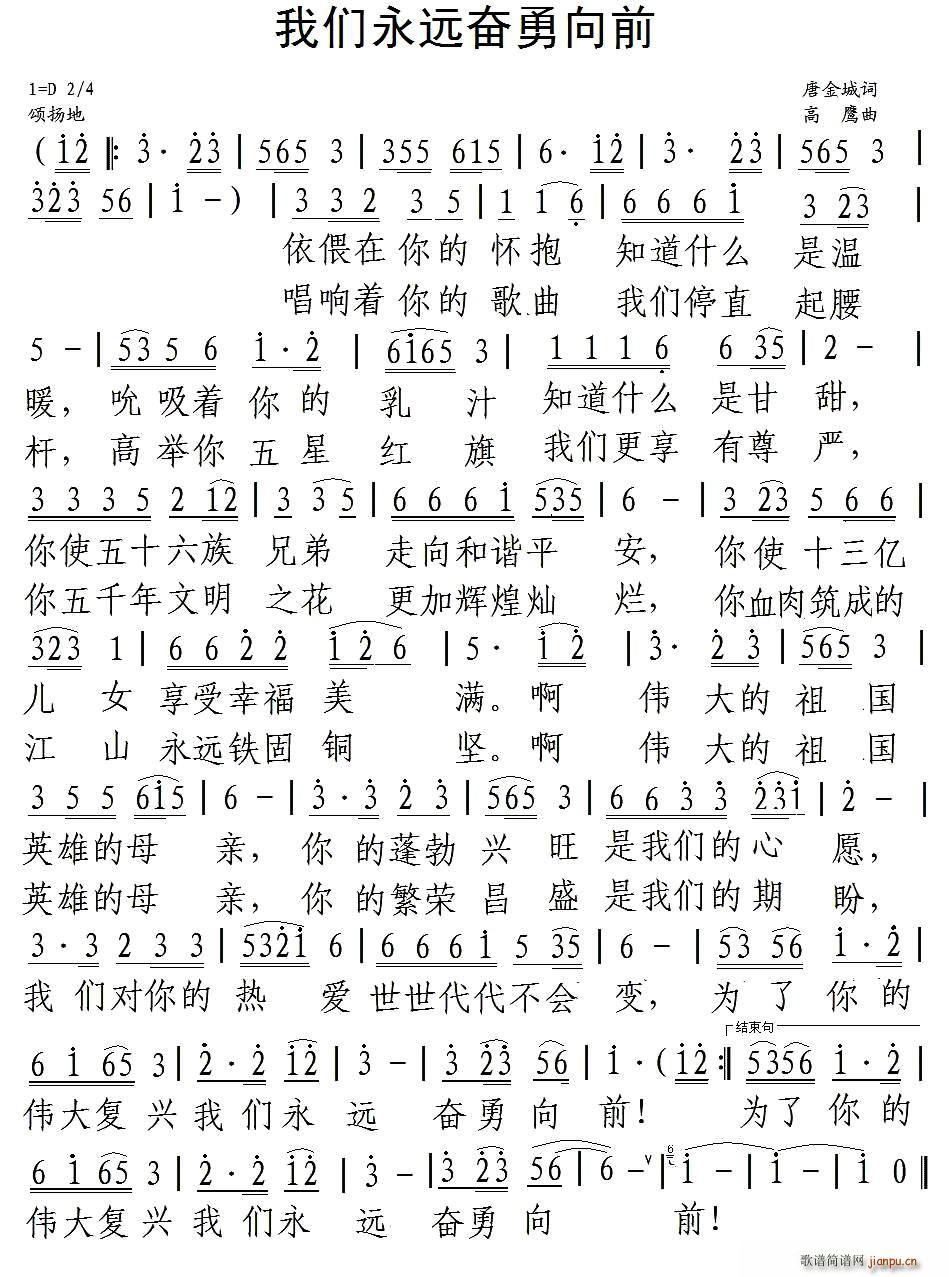 我们永远奋勇向前
1=D 2/4 唐金城词
颂扬地 高 鹰曲
( i 2 ‖: 3 · 2 3 | 5 6 5 3 | 3 5 5 6 1 5 | 6 · i 2 | 3 · 2 3 | 5 6 5 3 |
3 2 3 5 6 | i － ) | 3 3 2 3 5 | 1 1 6 | 6 6 6 i 3 2 3 |
依偎在 你的 怀抱 知道什么 是温
唱响着 你的 歌曲 我们停直 起腰
5 － | 5 3 5 6 i · 2 | 6 i 6 5 3 | 1 1 1 6 6 3 5 | 2 － |
暖, 吮 吸着 你 的 乳 汁 知道什么 是甘 甜,
杆, 高 举你 五 星 红 旗 我们更享 有尊 严,
3 3 3 5 2 1 2 | 3 3 5 | 6 6 6 i 5 3 5 | 6 － | 3 2 3 5 6 6 |
你使五十六族 兄弟 走向和谐平 安, 你使 十三亿
你五千年文明 之花 更加辉煌灿 烂, 你血肉筑成的
3 2 3 1 | 6 6 2 2 i 2 6 | 5 · i 2 | 3 · 2 3 | 5 6 5 3 |
儿 女 享受幸福 美 满。啊 伟 大的 祖 国
江 山 永远铁固 铜 坚。啊 伟 大的 祖 国
3 5 5 6 i 5 | 6 － | 3 · 3 2 3 | 5 6 5 3 | 6 6 3 3 2 3 i | 2 － |
英雄的母 亲, 你 的蓬勃 兴 旺 是我们的心 愿,
英雄的母 亲, 你 的繁荣 昌 盛 是我们的期 盼,
3 · 3 2 3 3 | 5 3 2 i 6 | 6 6 6 i 5 3 5 | 6 － | 5 3 5 6 i · 2 |
我 们对你的 热 爱 世世代代不会 变, 为 了 你 的
结束句
6 i 6 5 3 | 2 · 2 i 2 | 3 － | 3 2 3 5 6 | i · ( i 2 :‖ 5 3 5 6 i · 2 |
伟大复 兴 我 们永 远 奋勇 向 前! 为了 你 的
6 i 6 5 3 | 2 · 2 i 2 | 3 － | 3 2 3 5 6 | 6 － ∨ | 6 i － | i － | i 0 ‖
伟大复 兴 我 们永 远 奋勇 向 前!
歌谱简谱网 jianpu.cn